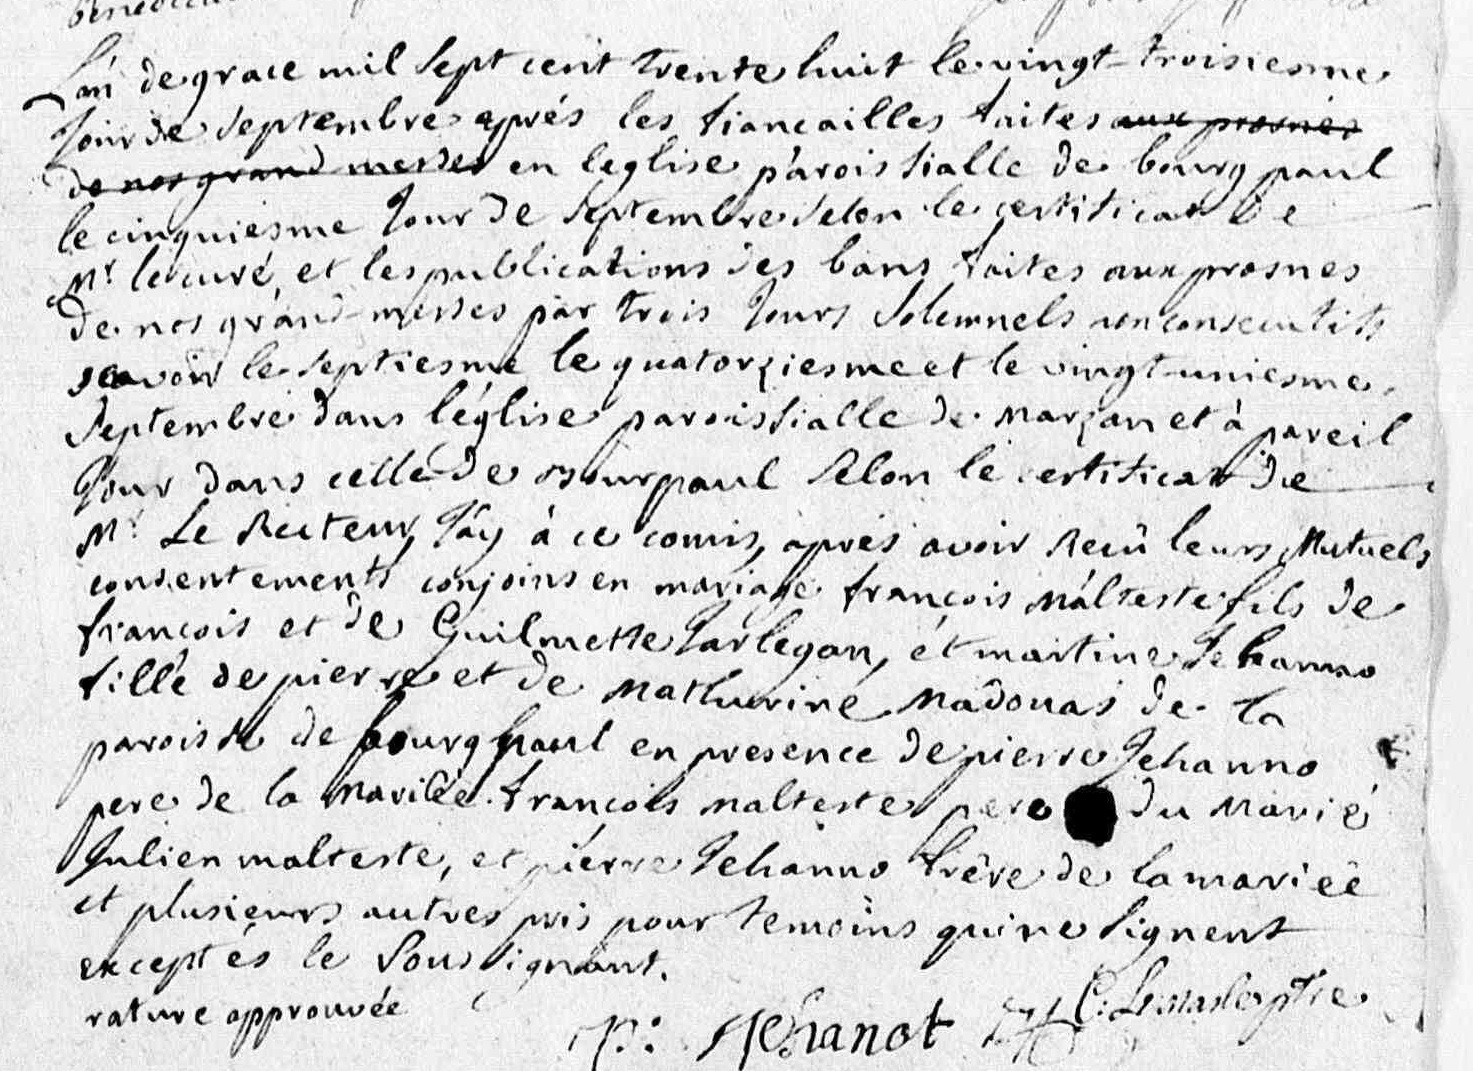 L'an de grace mil sept cent trente huit le vingt-troisiesme
Jour de Septembre aprés les fiancailles faites aux prosnes
de nos grand messes en leglise paroissialle de bourg paul
le cinquiesme Jour de Septembre selon le certificat de
Mr. le curé, et les publications des bans faites aux prosnes
de nos grand-messes par trois Jours solemnels non consecutifs
scavoir le septiesme le quatorziesme et le vingt-uniesme
Septembre dans l'église paroissialle de Marzan et à pareil
Jour dans celle de bourpaul selon le certificat de
Mr. Le Recteur, J'ay à ce comis, aprés avoir Recû leurs Mutuels
consentements conjoins en mariage françois Malteste fils de
françois et de Guilmette Jarlegan, et martine Jehanno
fille de pierre et de Mathurine Madouas de la
paroisse de bourg paul en presence de pierre Jehanno
pere de la mariéé. françois malteste pere du Marié
Julien malteste, et pierre Jehanno frêre de la mariéé
et plusieurs autres pris pour temoins qui ne signent
exceptés le Sous signant.
rature approuvée
p: Jehanot